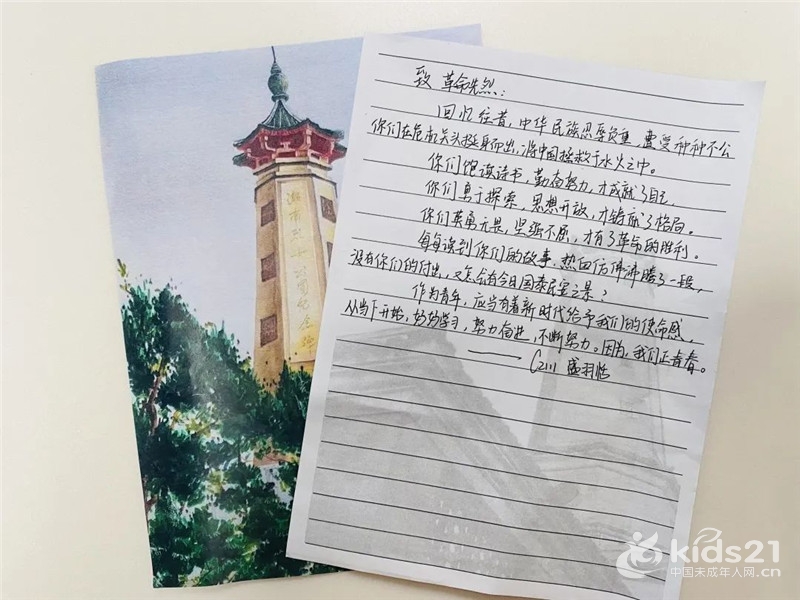 致 革命先烈：
回忆往昔，中华民族忍辱负重，遭受种种不公
你们在危机关头挺身而出，将中国拯救于水火之中。
你们饱读诗书，勤奋努力，才成就了自己，
你们勇于探索，思想开放，才铸就了格局。
你们英勇无畏，坚强不屈，才有了革命的胜利。
每每读到你们的故事，热血仿佛沸腾了一般，
没有你们的付出，又怎会有今日国泰民安之景？
作为青年，应当有着新时代给予我们的使命感，
从当下开始，好好学习，努力奋进，不断努力。因为，我们正青春。
—— C2111 盛羽恬
kids21
中国未成年人网.cn